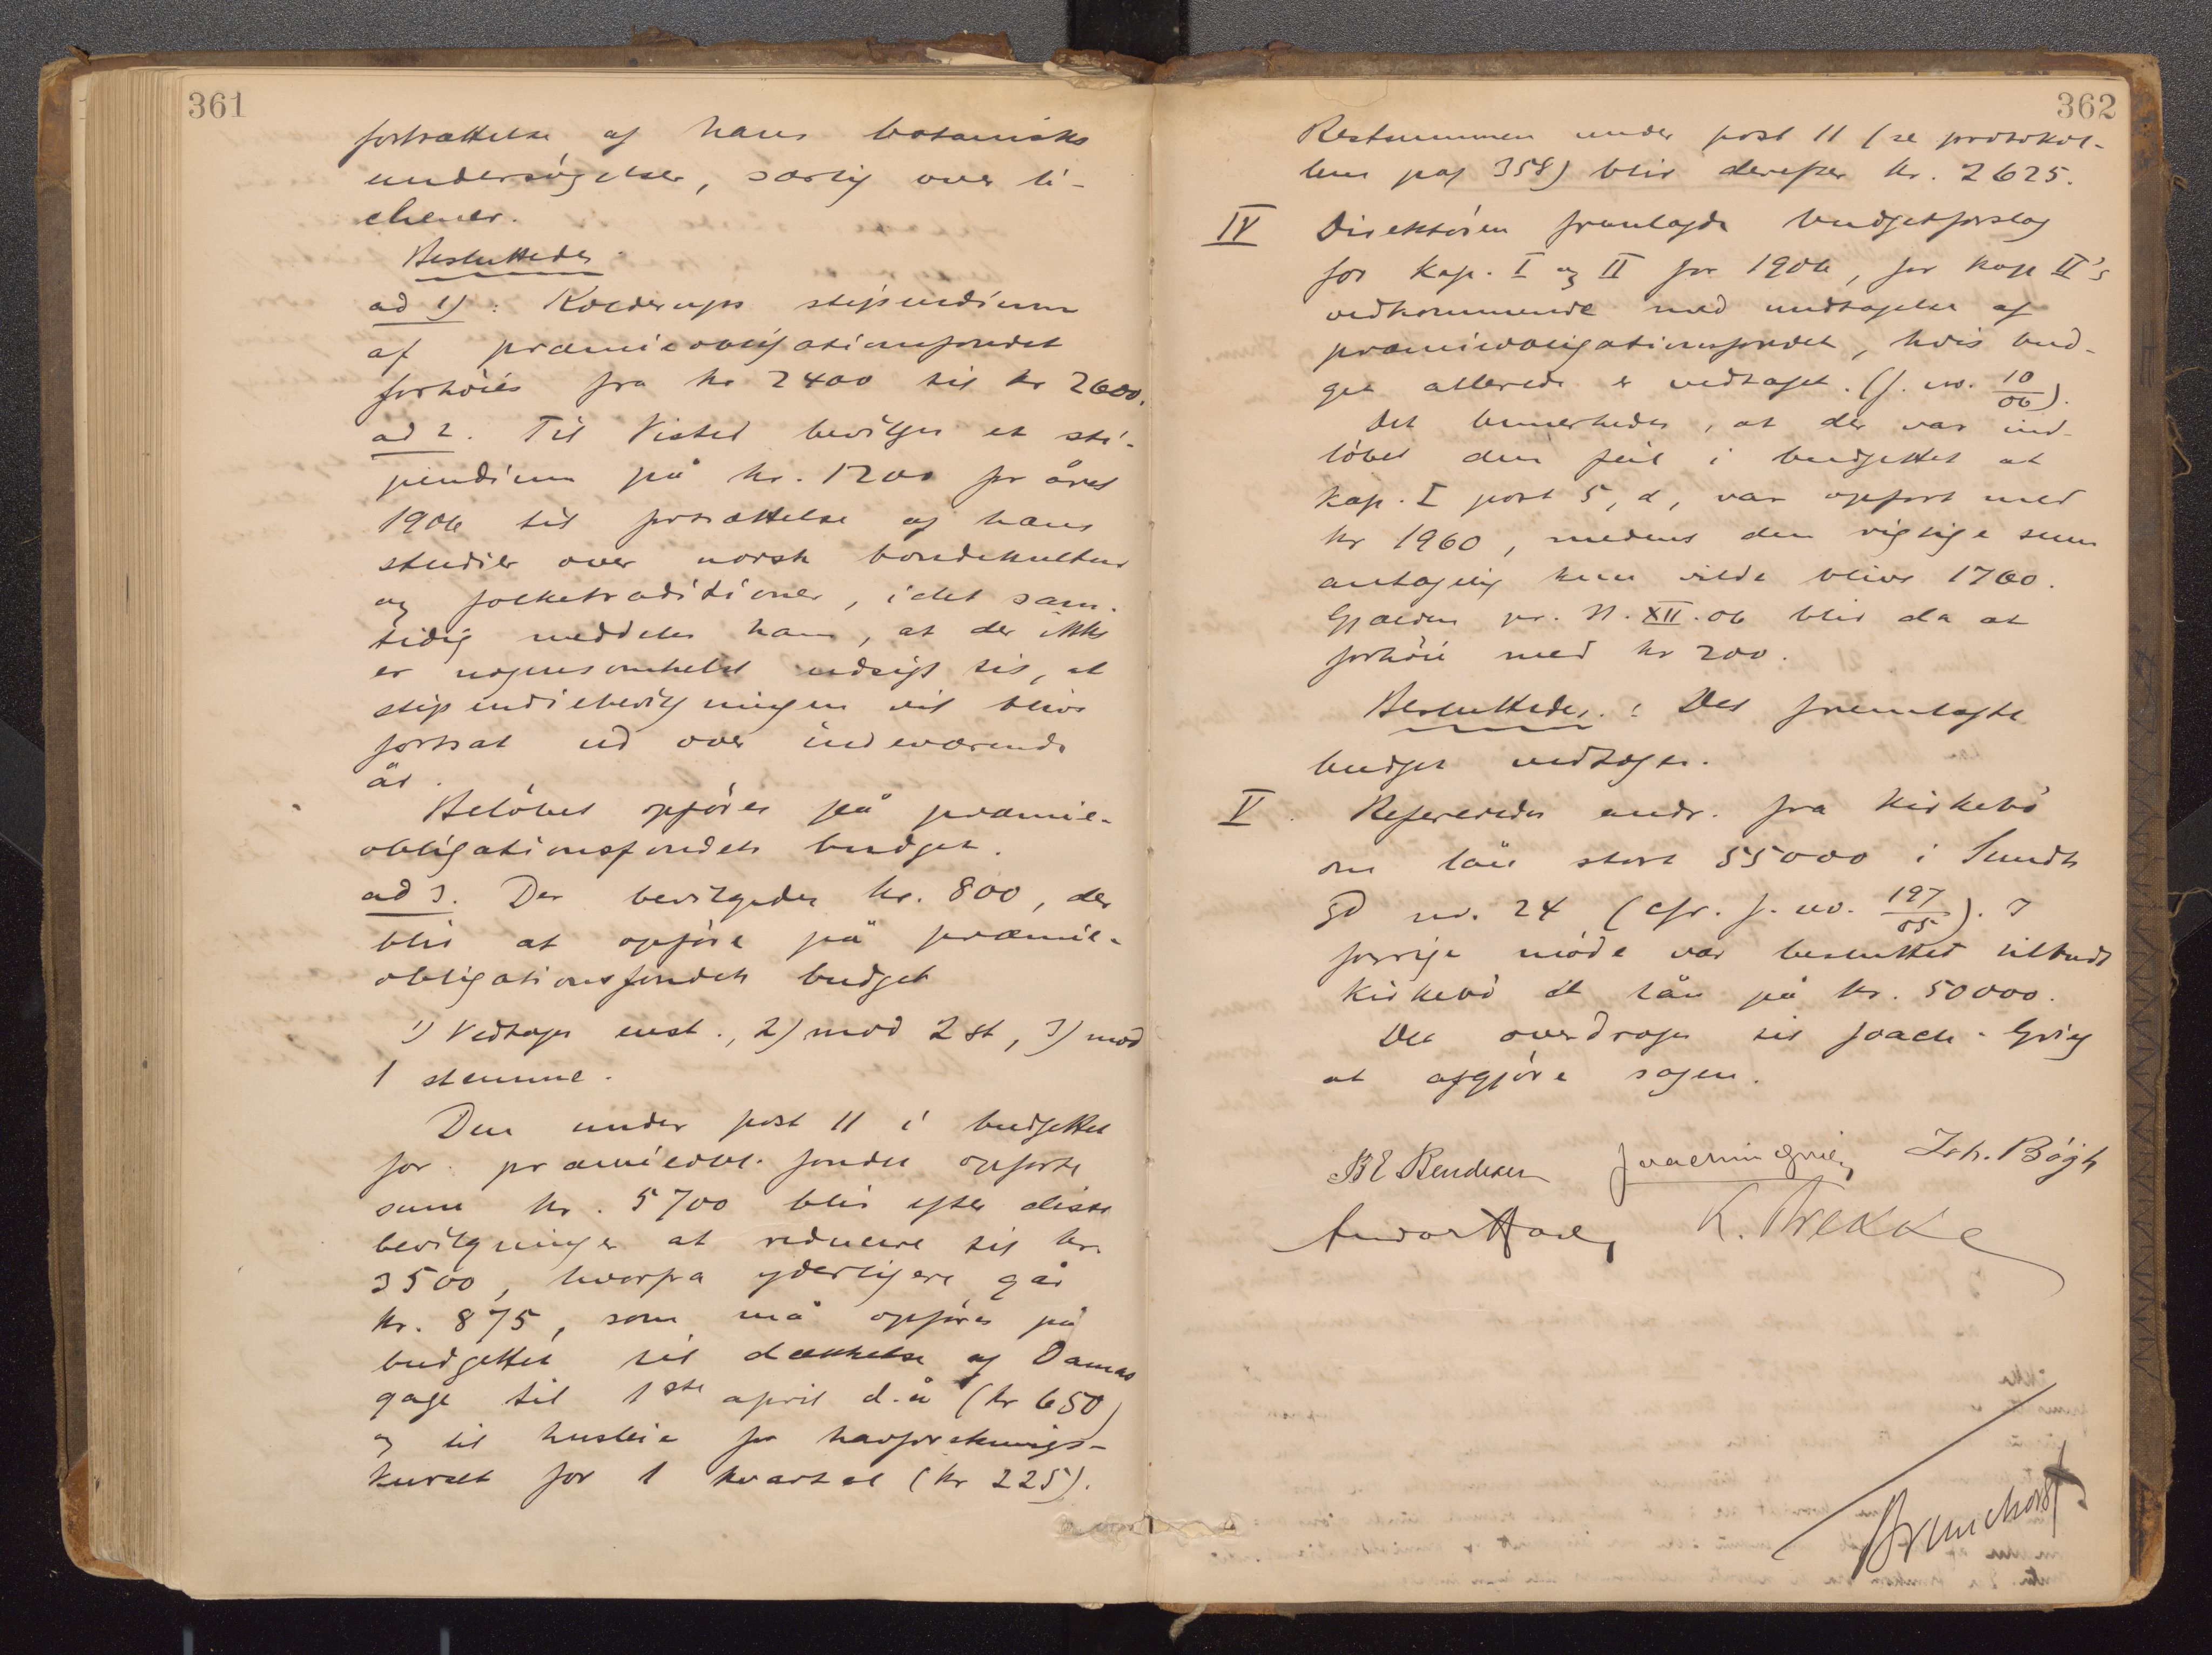 361
fortsættelse af hans botaniske
undersøgelser, særlig over li-
chener.
Besluttedes:
ad 1): Kolderups stipendium
af præmieobligationsfondet
forhøies fra kr 2400 til kr 2600.
ad 2. Til Visted bevilges et sti-
pendium på kr. 1200 for året
1906 til fortsættelse af hans
studier over norsk bondekultur
og folketraditioner, idet sam-
tidig meddeles ham, at der ikke
er nogensomhelst udsigt til, at
stipendiebevilgningen vil blive
fortsat ud over indeværende
år.
Beløbet opføres på præmie-
obligationsfondets budget.
ad 3. Der bevilgedes kr. 800, der
blir at opføre på præmie-
obligationsfondets budget
1) Vedtages enst., 2) mod 2 st, 3) mod
1 stemme.
Den under post 11 i budgettet
for præmieobl. fondet opførte
sum kr. 5700 blir efter disse
bevilgninger at reducere til kr.
3500, hvorfra yderligere går
kr. 875, som må opføres på
budgettet til dækkelse af Damas
gage til 1ste april d.å (kr 650)
og til husleie for havforsknings-
kurset for 1 kvartal (kr 225).
362
Restsummen under post 11 (se protokol-
len pag 358) blir derefter kr. 2625.
IV Direktøren fremlagde budgetforslag
for kap. I og II for 1906, for kap II's
vedkommende med undtagelse af
præmieobligationsfondet, hvis bud-
get allerede er vedtaget. (J. no. 10/06).
Det bemerkedes, at der var ind-
løbet den feil i budgettet at
kap. I post 5, d, var opført med
kr 1960, medens den rigtige sum
antagelig kun vilde blive 1760.
Gjælden pr. 31. XII. 06 blir da at
forhøie med kr 200.
Besluttedes: Det fremlagte
budget vedtages.
V. Refereredes andr. fra Kirkebø
om lån stort 55000 i Sundts
gd no. 24 (cfr. J. no. 197/05). I
forrige møde var besluttet tilbudt
Kirkebø et lån på kr. 50000.
Det overdroges til Joach. Grieg
at afgjøre sagen.
B E Bendixen Joachim Grieg Joh. Bøgh
K. Brekke
Brunchorst